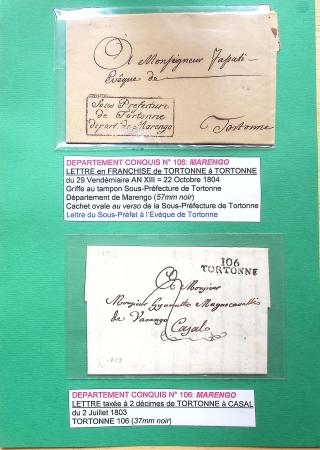 A Monseigneur
Evêque de
Sous Préfecture
de Tortonne
départ. de Marengo
Tortonne
DEPARTEMENT CONQUIS N° 106: MARENGO
LETTRE en FRANCHISE de TORTONNE à TORTONNE
du 29 Vendémiaire AN XIII = 22 Octobre 1804
Griffe au tampon Sous-Préfecture de Tortonne
Département de Marengo (57mm noir)
Cachet ovale au verso de la Sous-Préfecture de Tortonne
Lettre du Sous-Préfet à l'Evèque de Tortonne
106
TORTONNE
A Monsieur
Monsieur
de Varengo
Casal
DEPARTEMENT CONQUIS N° 106: MARENGO
LETTRE taxée à 2 décimes de TORTONNE à CASAL
du 2 Juillet 1803
TORTONNE 106 (37mm noir)